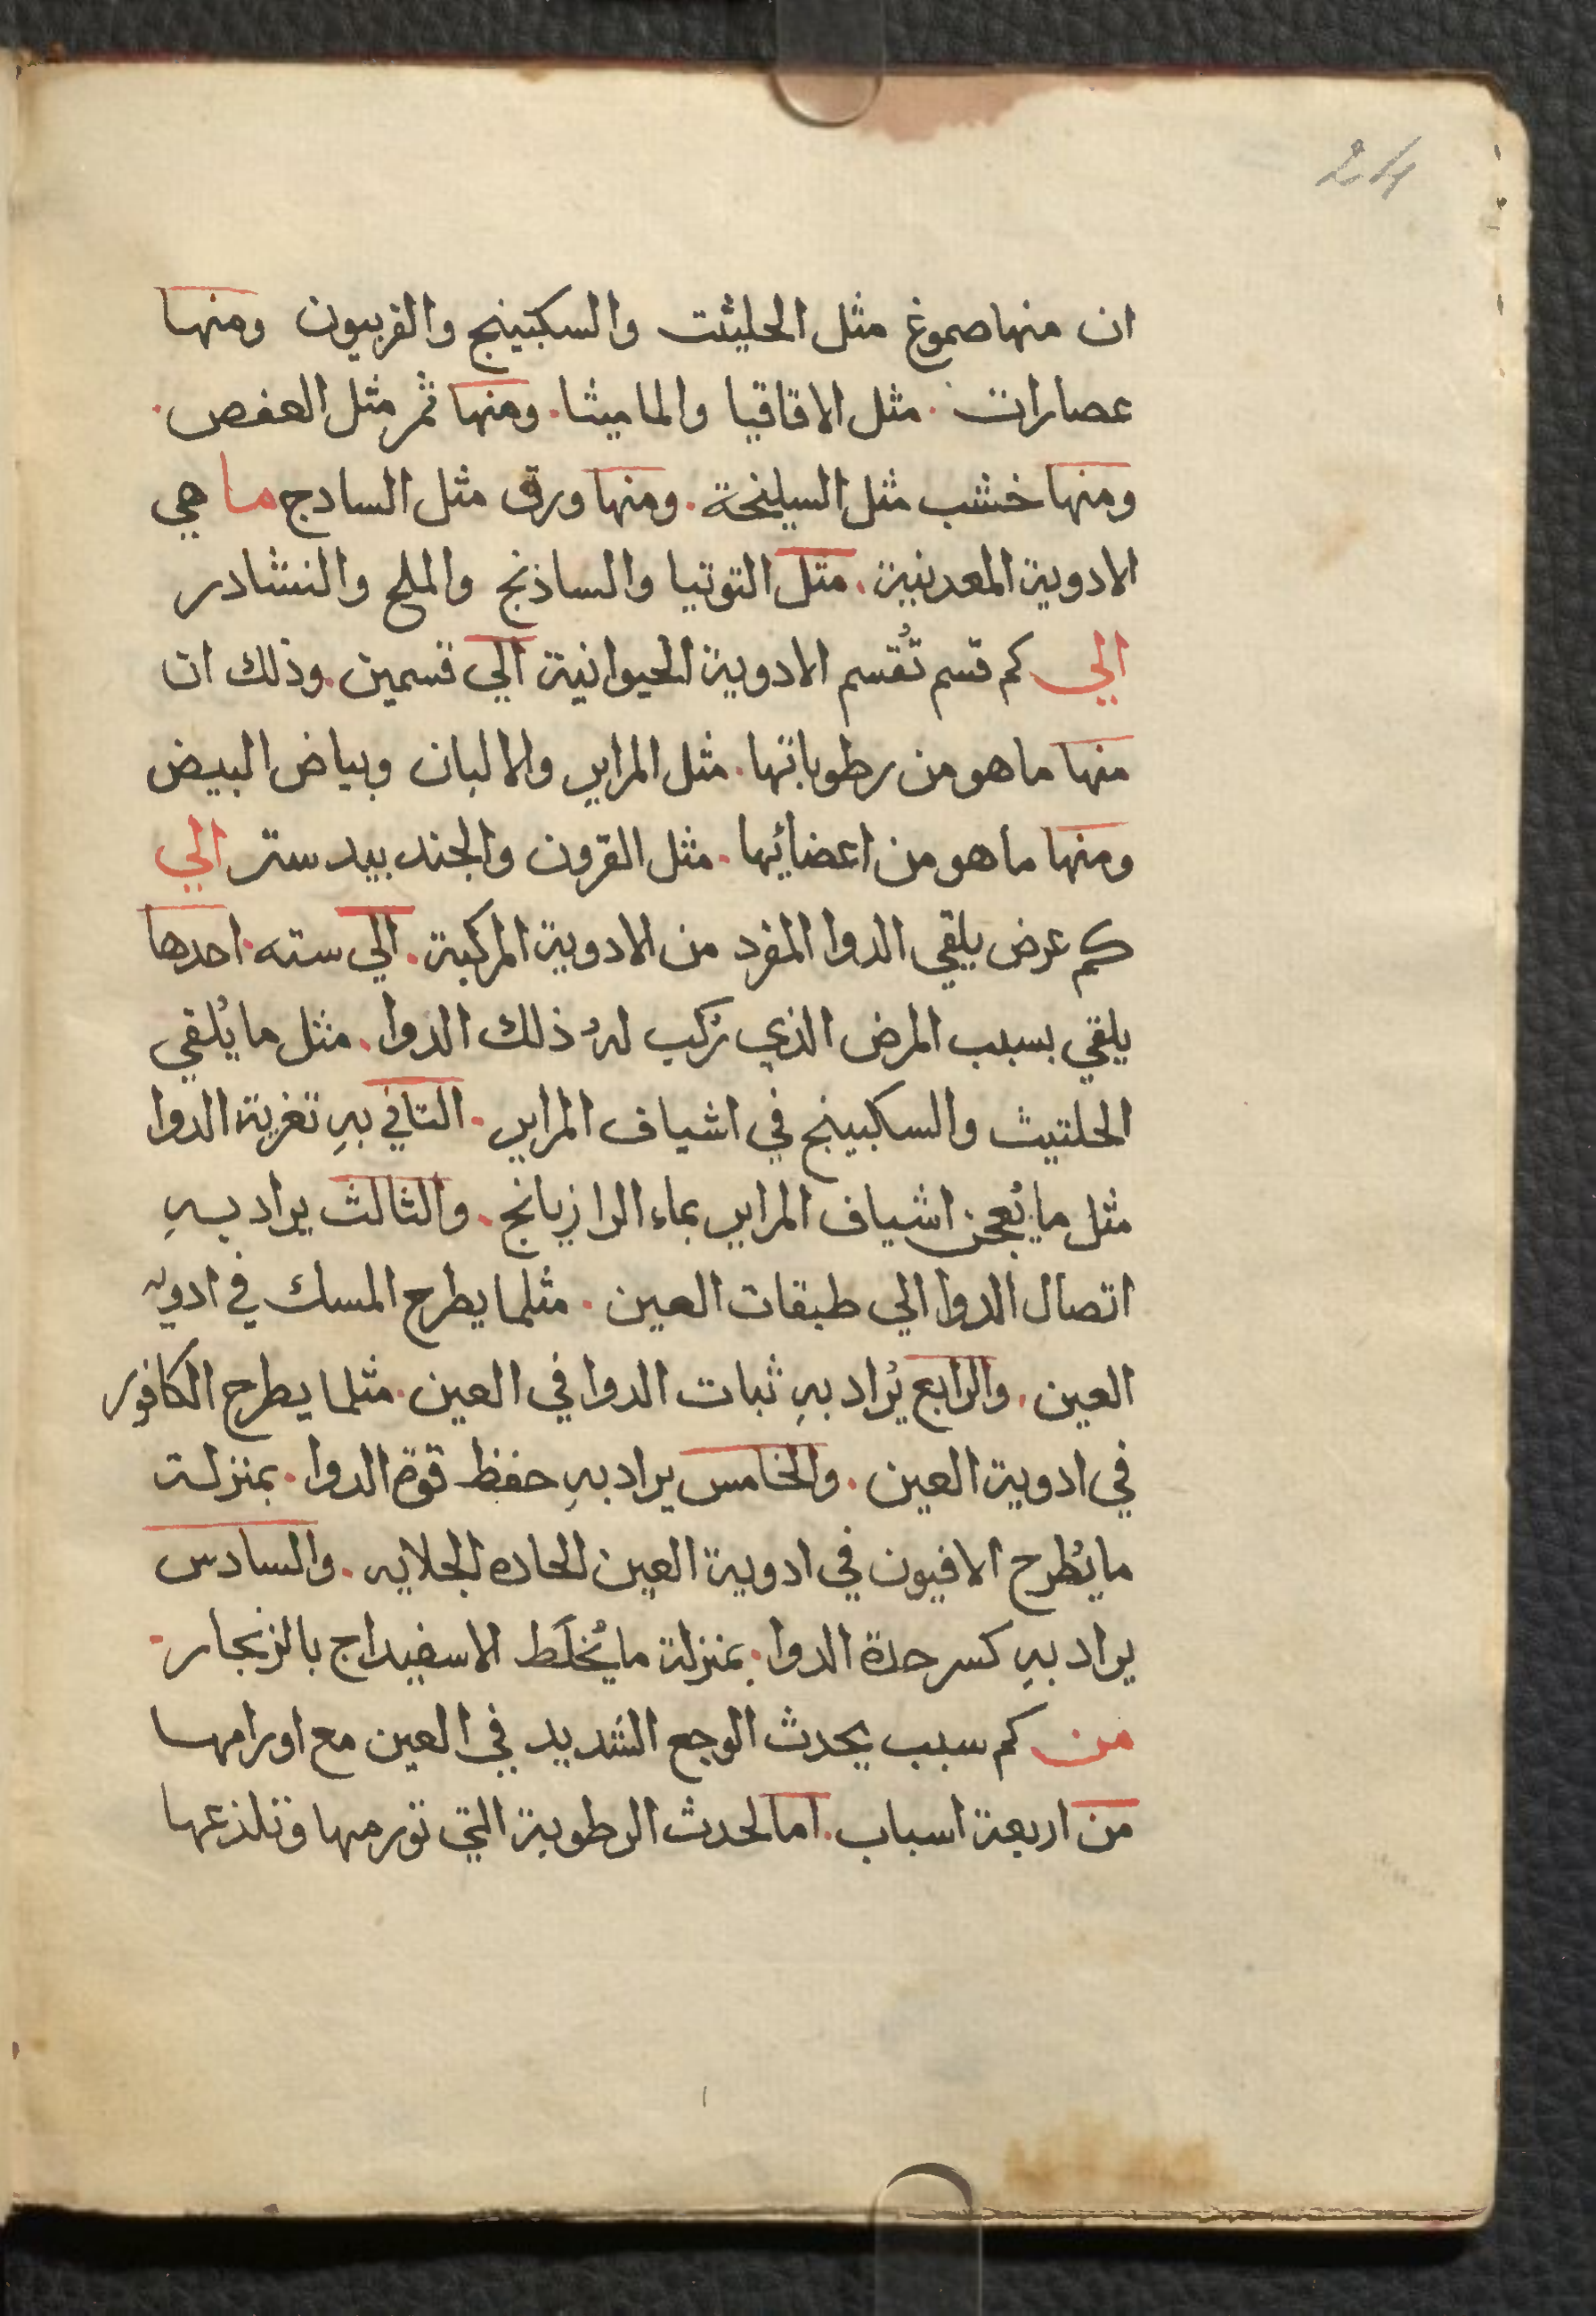 24
ان منها صموغ مثل الحليثت والسكبينج والفربيون ومنها
عصارات . مثل الاقاقيا والماميثا . ومنها ثمر مثل العفص .
ومنها خشب مثل السيلنحة . ومنها ورق مثل السادج ما هي
الادوية المعدنية . متل التوتيا والساذنج والملح والنشادر
الي كم قسم تُقسم الادوية الحيوانية الي قسمين . وذلك ان
منها ما هو من رطوباتها . مثل المراير والالبان وبياض البيض
ومنها ما هو من اعضائها . مثل القرون والجند بيد ستر الي
كم عرض يلقي الدوا المفرد من الادوية المركبة . الي سته . احدها
يلقي بسبب المرض الذي تركب لهُ ذلك الدوا . مثل ما يُلقي
الحلتيث والسكبينج في اشياف المراير . التاني بهِ تغرية الدوا
مثل ما يُعجن اشياف المراير بماء الرازيانج . والثالث يراد بهِ
اتصال الدوا الي طبقات العين . مثلما يطرح المسك في ادويه
العين . والرابع يُراد بهِ ثبات الدوا في العين . مثلما يطرح الكافور
في ادوية العين . والخامس يراد بهِ حفظ قوة الدوا . بمنزلة
ما يُطرح الافيون في ادوية العين الحاده الجلايه . والسادس
يراد بهِ كسر حدة الدوا . بمنزلة ما يُخلَط الاسفيداج بالزنجار .
من كم سبب يحدث الوجع الشديد في العين مع اورامها
من اربعة اسباب . اما لحدث الرطوبة التي تورمها وتلذعها